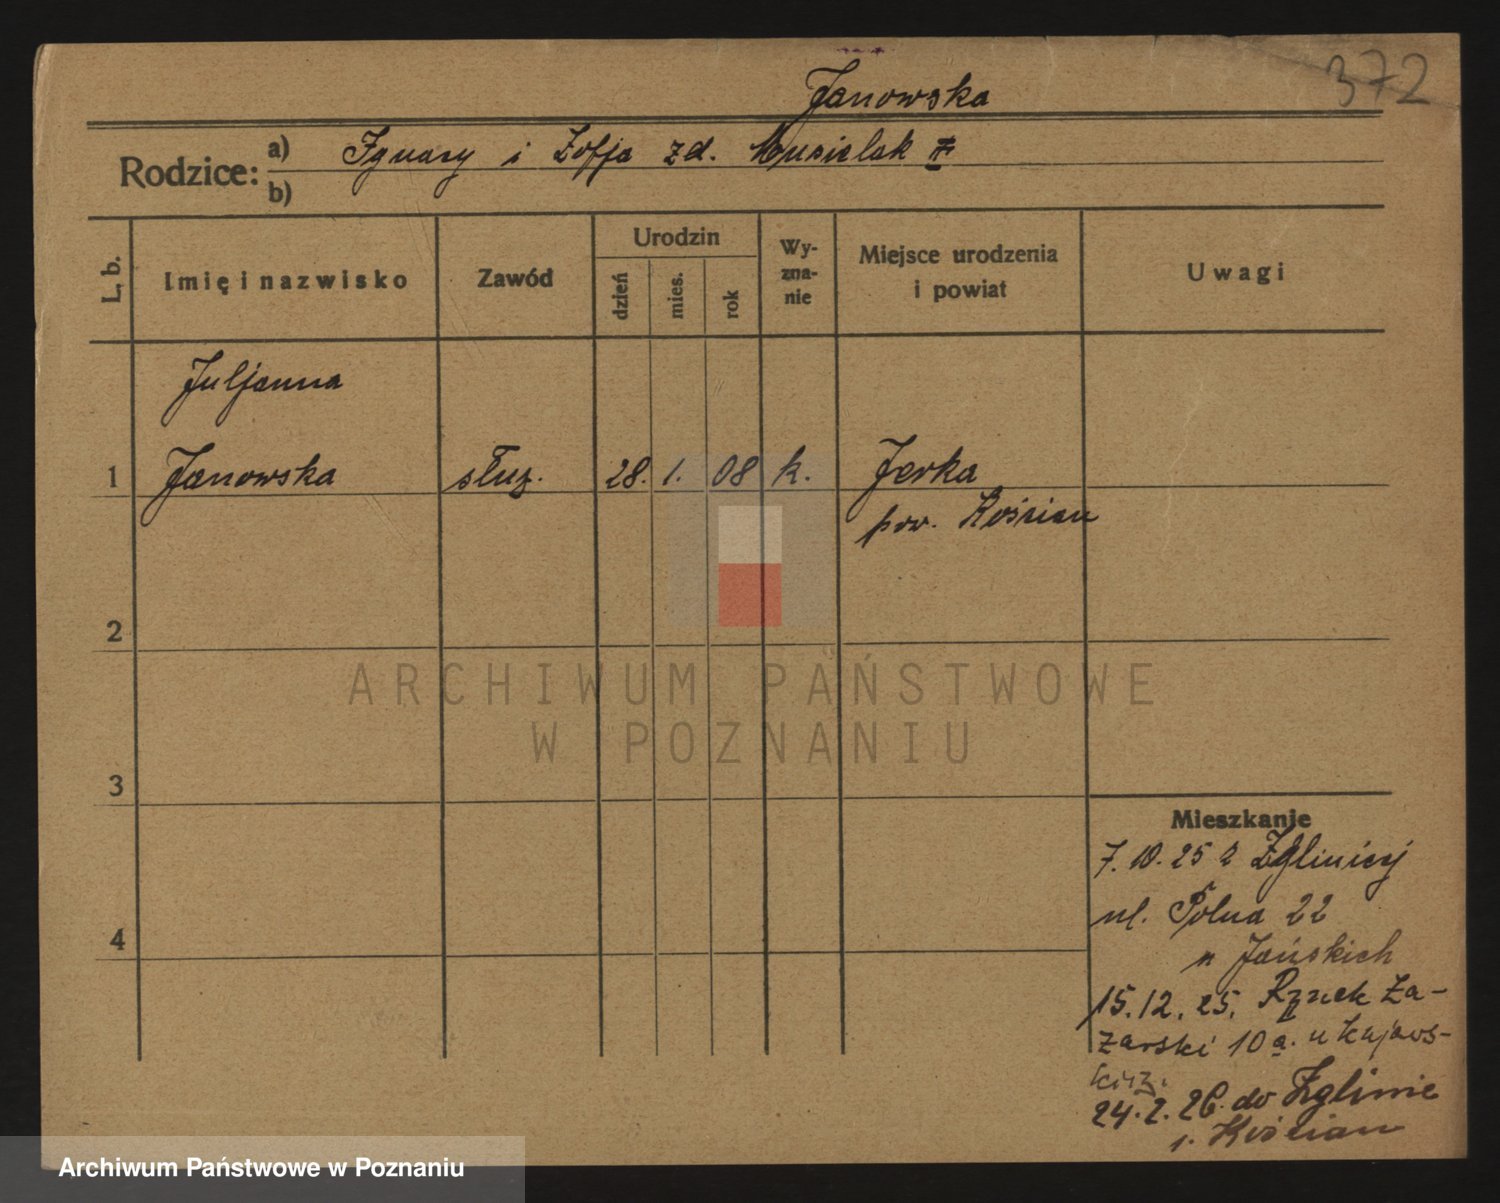 372
Janowska
Rodzice:
a) Ignacy i Zofja zd. Musielak
b)
L. b.
Imię i nazwisko
Zawód
Urodzin
dzień
mies.
rok
Wy-
zna-
nie
Miejsce urodzenia
i powiat
Uwagi
Juljanna
1 Janowska służ. 28. 1. 08 k. Jerka
pow. Kościan
2
ARCHIWUM PAŃSTWOWE
W POZNANIU
3
Mieszkanie
7.10.25 z
ul. Polna 22
u Jańskich
4
15.12.25. Rynek Ła-
zarski 10a. u Kujaws-
kiej.
24.2.26. do
Kościan
Archiwum Państwowe w Poznaniu